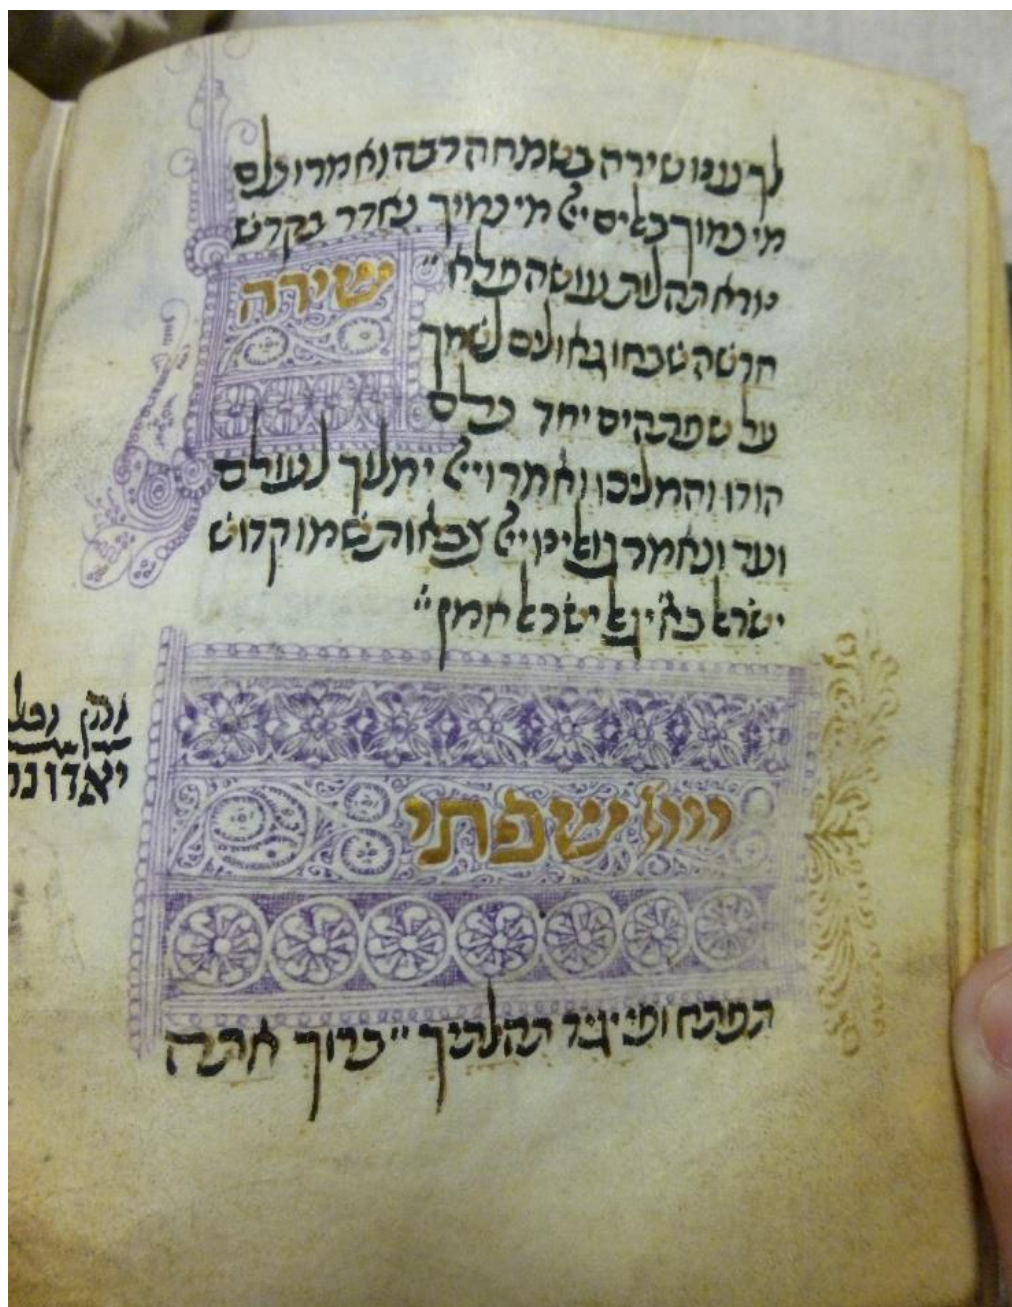 לך ענו שירה בשמחה רבה ואמרו כלם
מי כמוך באלים ייי מי כמוך נאדר בקדש
נורא תהלות עושה פלא״
שירה
חדשה שבחו גאולים לשמך
על שפת הים יחד כלם
הודו והמליכו ואמרו ייי ימלוך לעולם
ועד ונאמר גואלינו ייי צבאות שמו קדוש
ישראל בא״י גאל ישראל אמן״
ייי שפתי
תפתח ופי יגיד תהלתיך״ ברוך אתה